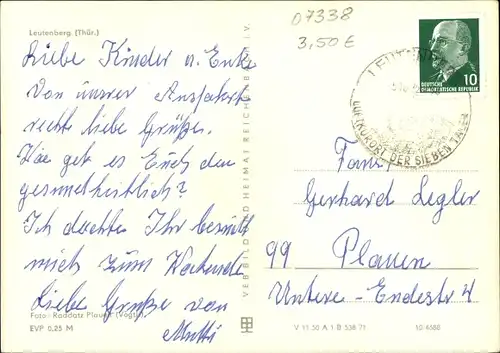 Leutenberg. (Thür.)
07338
3,50 €
Liebe Kinder u. Enke
Von unsrer Ausfahrt
recht liebe Grüße.
Wie get es Euch den
gesundheitlich?
Ich dachte Ihr besucht
mich zum Wochende
Liebe Grüße von
Mutti
Foto: Raddatz Plauen (Vogtl.)
EVP 0,25 M
VEB BILD UND HEIMAT REICHENBACH I. V.
10
DEUTSCHE
DEMOKRATISCHE REPUBLIK
LUFTKURORT DER SIEBEN TÄLER
Fam.
Gerhard Legler
99 Plauen
Untere-Endestr 4
V 11 50 A 1 B 538 71
10-4688